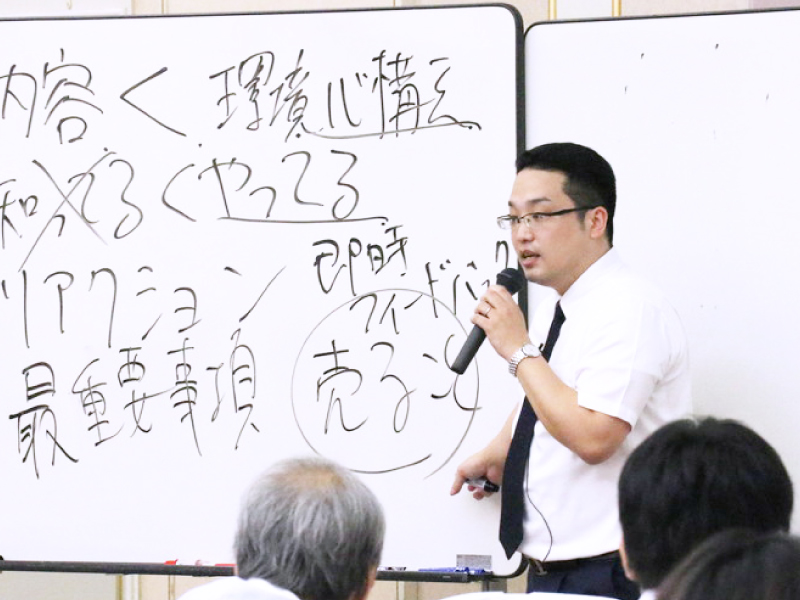 内容く環境心構え
知ってるくやってる
リアクション
即時
フィードバック
最重要事項
売る